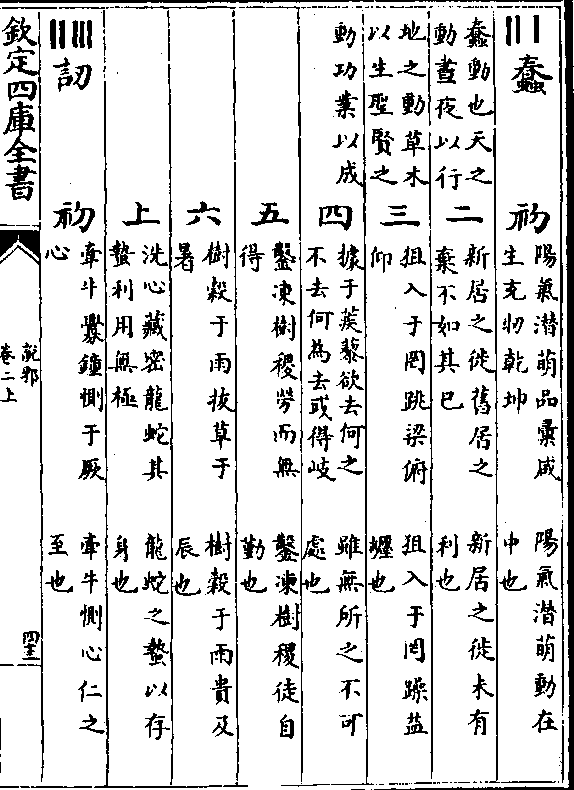 蠢
蠢動也天之
動晝夜以行
地之動草木
以生聖賢之
動功業以成
初
陽氣潛萌品彚咸
生充牣乾坤
陽氣潛萌動在
中也
二
新居之徙舊居之
棄不如其已
新居之徙未有
利也
三
狙入于罔跳梁俯
仰
狙入于罔躁益
纒也
四
據于蒺藜欲去何之
不去何為去或得岐
雖無所之不可
處也
五
鑿凍樹稷勞而無
得
鑿凍樹稷徒自
勤也
六
樹穀于雨拔草于
暑
樹穀于雨貴及
辰也
上
洗心藏密龍蛇其
蟄利用無極
龍蛇之蟄以存
身也
訒
初
牽牛釁鐘惻于厥
心
牽牛惻心仁之
至也
欽定四庫全書
說郛
卷二上
四十三